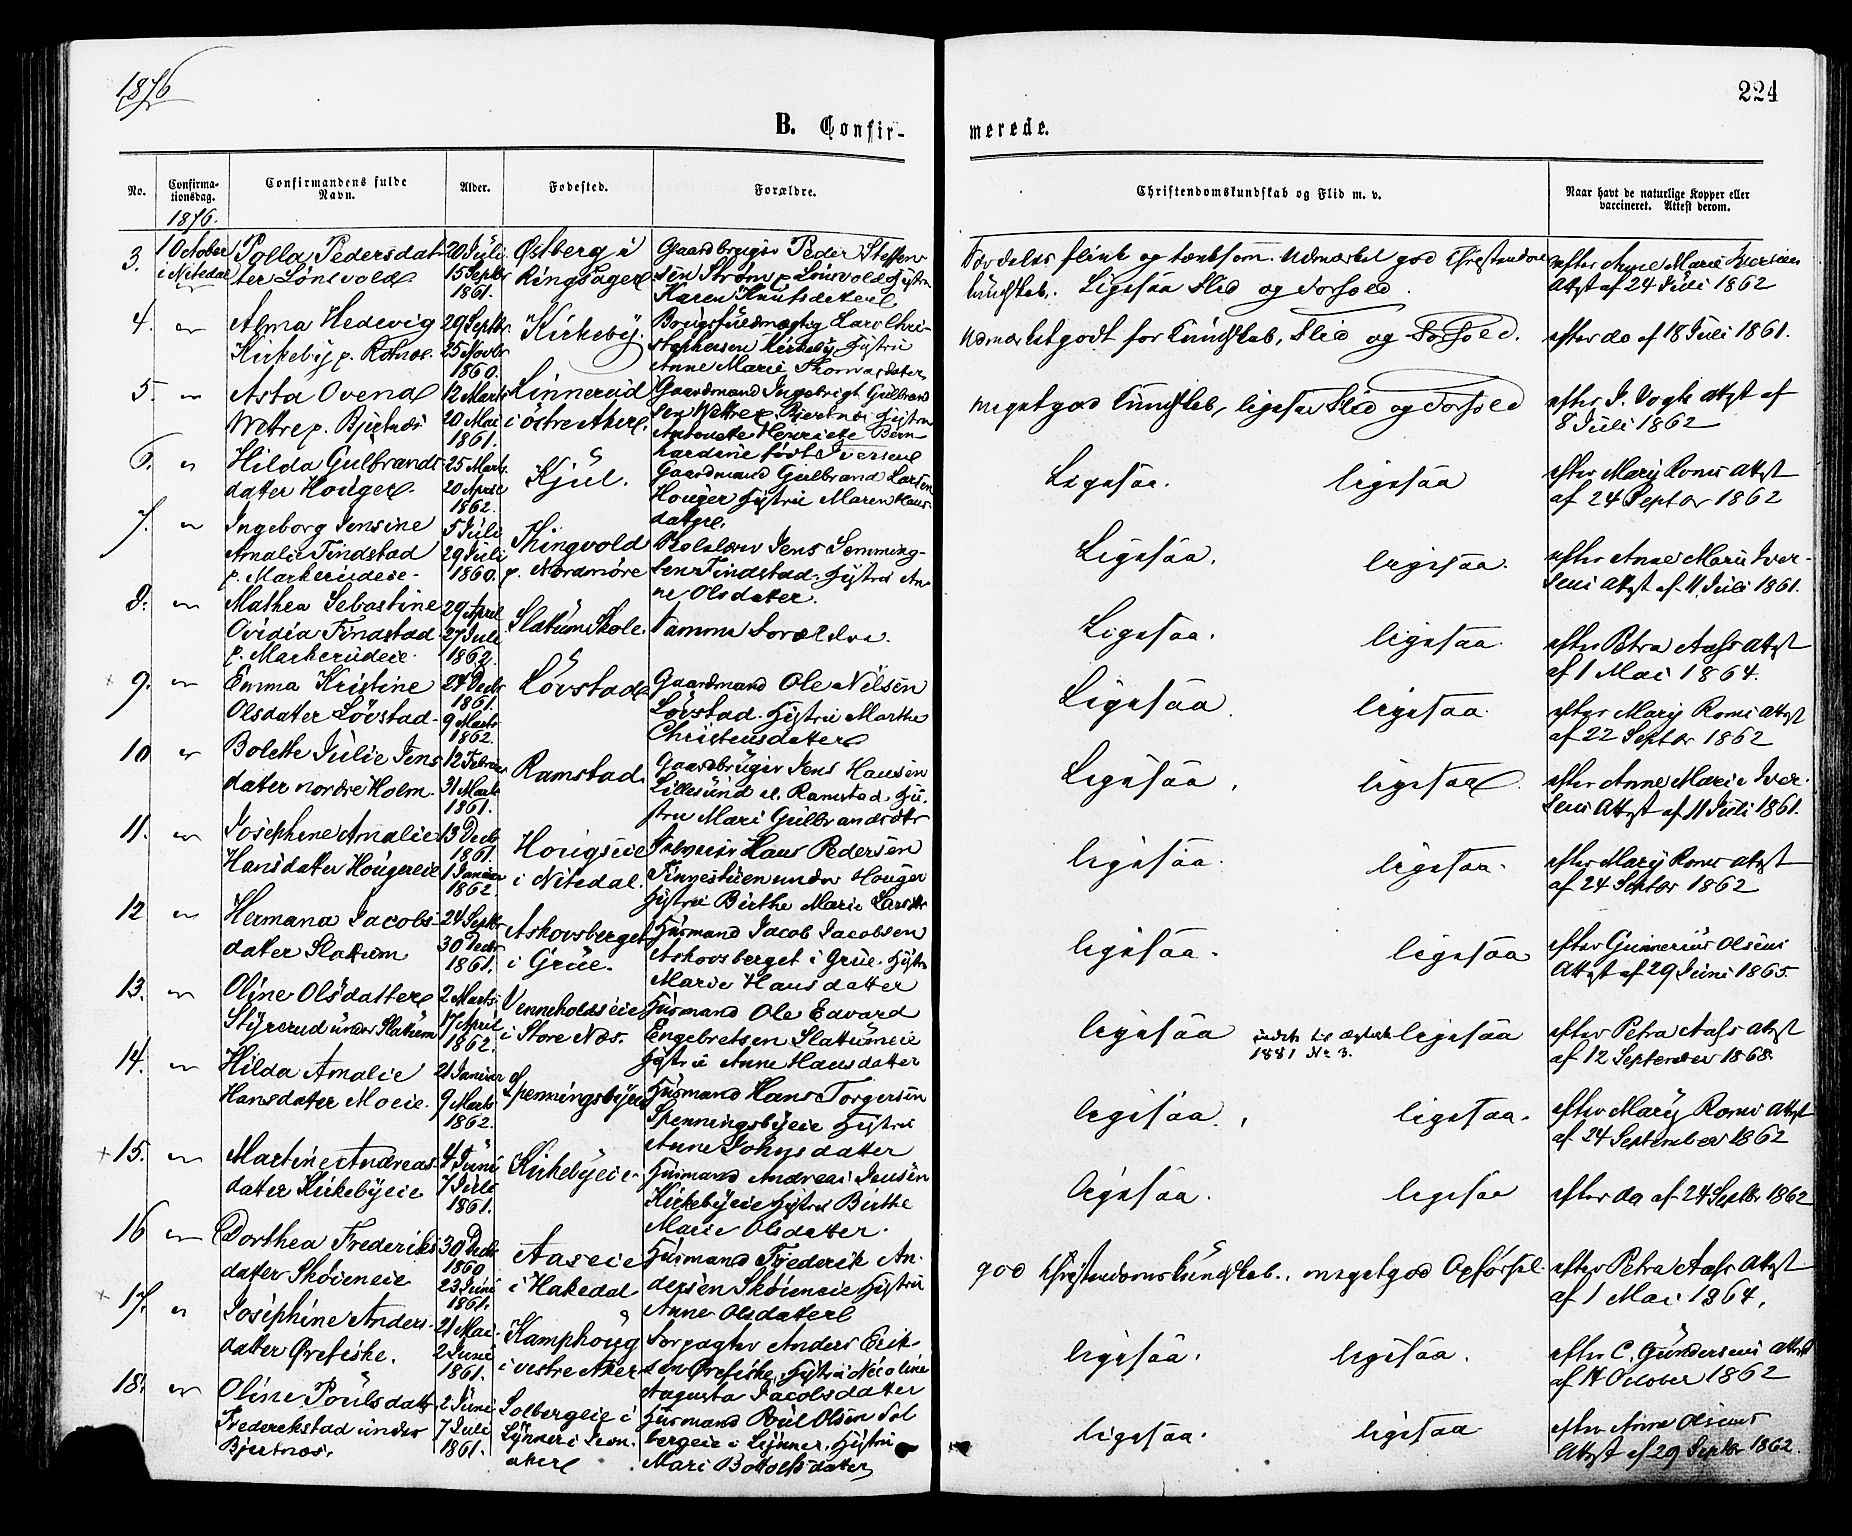 1876
224
B. Confir-
merede.
No.
Confirma-
tionsdag.
1876.
Confirmandens fulde
Navn.
Alder.
Fødested.
Forældre.
Christendomskundskab og Flid m. v.
Naar havt de naturlige Kopper eller
vaccineret. Attest derom.
3. 1 October
i Nitedal
Polla Pedersdat-
ter Lönsvold
20 Juli
15 Septbr
1861.
Østberg i
Ringsager
Gaardbruger Peder Steffen-
sen Strøm p. Lönsvold Hustru
Karen Knutsdatter
Særdeles flink og tænksom. Udmærket god Christendoms
kundskab. Ligesaa Flid og Forhold.
efter Anne Marie Iversens
Attst af 24 Juli 1862
4. "
Alma Hedevig
Kirkeby p. Rotnæs
29 Septbr
25 Novbr
1860.
Kirkeby.
Anne Marie Thorvasdatter
Udmærket godt for Kundskab, Flid og Forhold.
efter do af 18 Juli 1861.
5. "
Asta Ovena
Wettre p. Bjertnæs
12 Marts
20 Mai
1861.
Linnerud
i östre Aker.
Gaardmand Ingebrigt Gulbrand
sen Wettre p. Bjertnæs Hustru
Antonette Henriette Bern-
hardine født Iversen
meget god Kundskab, ligesaa Flid og Forhold
efter J. Vogts Attst af
8 Juli 1862
6. "
Hilda Gulbrands
datter Houger.
25 Marts
20 April
1862.
Kjul.
Gaardmand Gulbrand Larsen
Houger Hustru Maren Hans-
datter.
Ligesaa. ligesaa
efter Mary Roms Attst
af 24 Septbr 1862
7. "
Ingeborg Jensine
Amalie Tindstad
p. Markerudeie.
5 Juli
29 Juli
1860.
Thingvold
p. Nordmöre
Skolelærer Jens Semming-
sen Tindstad. Hustru An-
ne Olsdatter.
Ligesaa. ligesaa.
efter Anne Marie Iver-
sens Attst af 11 Juli 1861.
8. "
Mathea Sebastine
Ovidia Tindstad
p. Markerudeie.
29 April
27 Juli
1862.
Slatum Skole.
Samme Forældre.
Ligesaa. ligesaa.
efter Petra Aass Attst
af 1 Mai 1864.
9. "
Emma Kristine
Olsdatter Lövstad.
24 Decb
1861.
9 Marts
1862.
Lövstad
Gaardmand Ole Nilsen
Lövstad. Hustru Marthe
Christensdatter
Ligesaa. ligesaa.
efter Mary Roms Attst
af 22 Septbr 1862
10 "
Bolette Julie Jens
datter nordre Holm.
12 Februar
31 Marts
1861.
Ramstad.
Gaardbruger Jens Hansen
Lillesund el. Ramstad. Hu-
stru Mari Gulbrandsdtr
Ligesaa. ligesaa.
efter Anne Marie Iver-
sens Attst af 11 Juli 1861.
11. "
Josephine Amalie
Hansdatter Hougereie
13 Decb
1861.
1 Januar
1862
Hougseie
i Nitedal.
Hans Pedersen
Finnestuen under Houger
Hustru Birthe Marie Larsdtr
ligesaa. ligesaa.
efter Mary Roms Attst
af 24 Septbr 1862
12 "
Hermana Jacobs-
datter Slattum
24 Septbr
30 Decbr
1861.
Askovsberget
i Grue.
Husmand Jacob Jacobsen
Askovsberget i Grue. Hustru
Marie Hansdatter
ligesaa. ligesaa
efter Gunnerius Olsens
Attst af 29 Juni 1865.
13. "
Oline Olsdatter
Styrerud under Slatum
2 Marts
17 April
1862.
Venneholdseie
i Store Næs.
Husmand Ole Edvard
Engebretsen Slattumeie
Hustru Anne Hansdatter
ligesaa
1881 No 3. ligesaa
efter Petra Aass Attst
af 12 September 1868.
14. "
Hilda Amalie
Hansdatter Moeie.
21 Januar
9 Marts
1862.
Spenningsbyeie
Husmand Hans Torgersen
Spenningsbyeie Hustru
Anne Johnsdatter
ligesaa. ligesaa.
efter Mary Roms Attst
af 24 September 1862
15. "
Martine Andreas-
datter Kirkebyeie
4 Juni
7 Juli
1861.
Kirkebyeie.
Husmand Andreas Jensen
Kirkebyeie Hustru Birthe
Marie Olsdatter.
ligesaa. ligesaa
efter do af 24 Septbr 1862
16 "
Dorthea Frederiks
datter Sköieneie
30 Decb
1860
23 Juni
1861.
Aaseie
i Hakedal
Husmand Frederik An-
dersen Sköieneie Hustru
Anne Olsdatter
god Christendomskundskab, meget god Opførsel.
efter Petra Aass Attst
af 1 Mai 1864.
17. "
Josephine Anders-
datter Ørefiske.
21 Mai
2 Juni
1861.
Kamphoug
i vestre Aker
Forpagter Anders Erik-
sen Ørefiske. Hustru Nicoline
Augusta Jacobsdatter
ligesaa. ligesaa.
efter C. Gundersens Attst
af 14 October 1862
18. "
Oline Poulsdatter
Frederekstad under
Bjertnæs.
2 Juni
7 Juli
1861.
Solbergeie i
Lynner i Jevn-
aker
Husmand Poul Olsen Sol
bergeie i Lynner. Hustru
Mari Bottolfsdatter
ligesaa. ligesaa
efter Anne Olsens
Attst af 29 Septbr 1862.